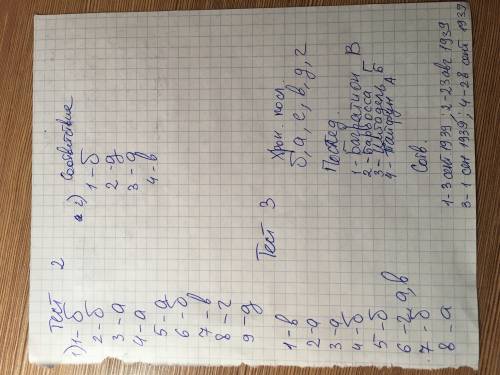 Тест 2
1) 1 - б
2 - б
3 - а
4 - а
5 - а
6 - б
7 - в
8 - г
9 - д
2) Соответствие
1 - б
2 - д
3 - д
4 - в
Тест 3
1 - в
2 - а
3 - а
4 - б
5 - б
6 - г, а, в
7 - б
8 - а
Хрон. посл.
б, а, е, в, д, г
Послед.
1 - Багратион В
2 - Барбосса Г
3 - Цитадель Б
4 - Тайфун А
Соотв.
1 - 3 сент 1939; 2 - 23 авг 1939
3 - 1 сен 1939; 4 - 28 сент 1939